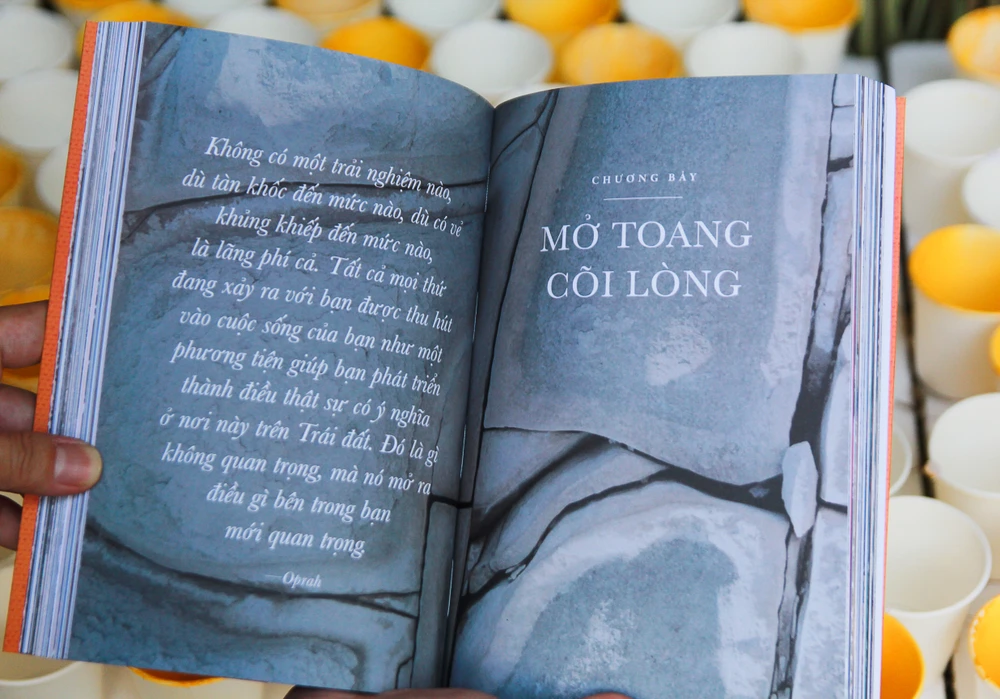 Không có một trải nghiệm nào,
dù tàn khốc đến mức nào, dù có vẻ
khủng khiếp đến mức nào,
là lãng phí cả. Tất cả mọi thứ
đang xảy ra với bạn được thu hút
vào cuộc sống của bạn như một
phương tiện giúp bạn phát triển
thành điều thật sự có ý nghĩa
ở nơi này trên Trái đất. Đó là gì
không quan trọng, mà nó mở ra
điều gì bên trong bạn
mới quan trọng.
—Oprah
CHƯƠNG BẢY
MỞ TOANG
CÕI LÒNG